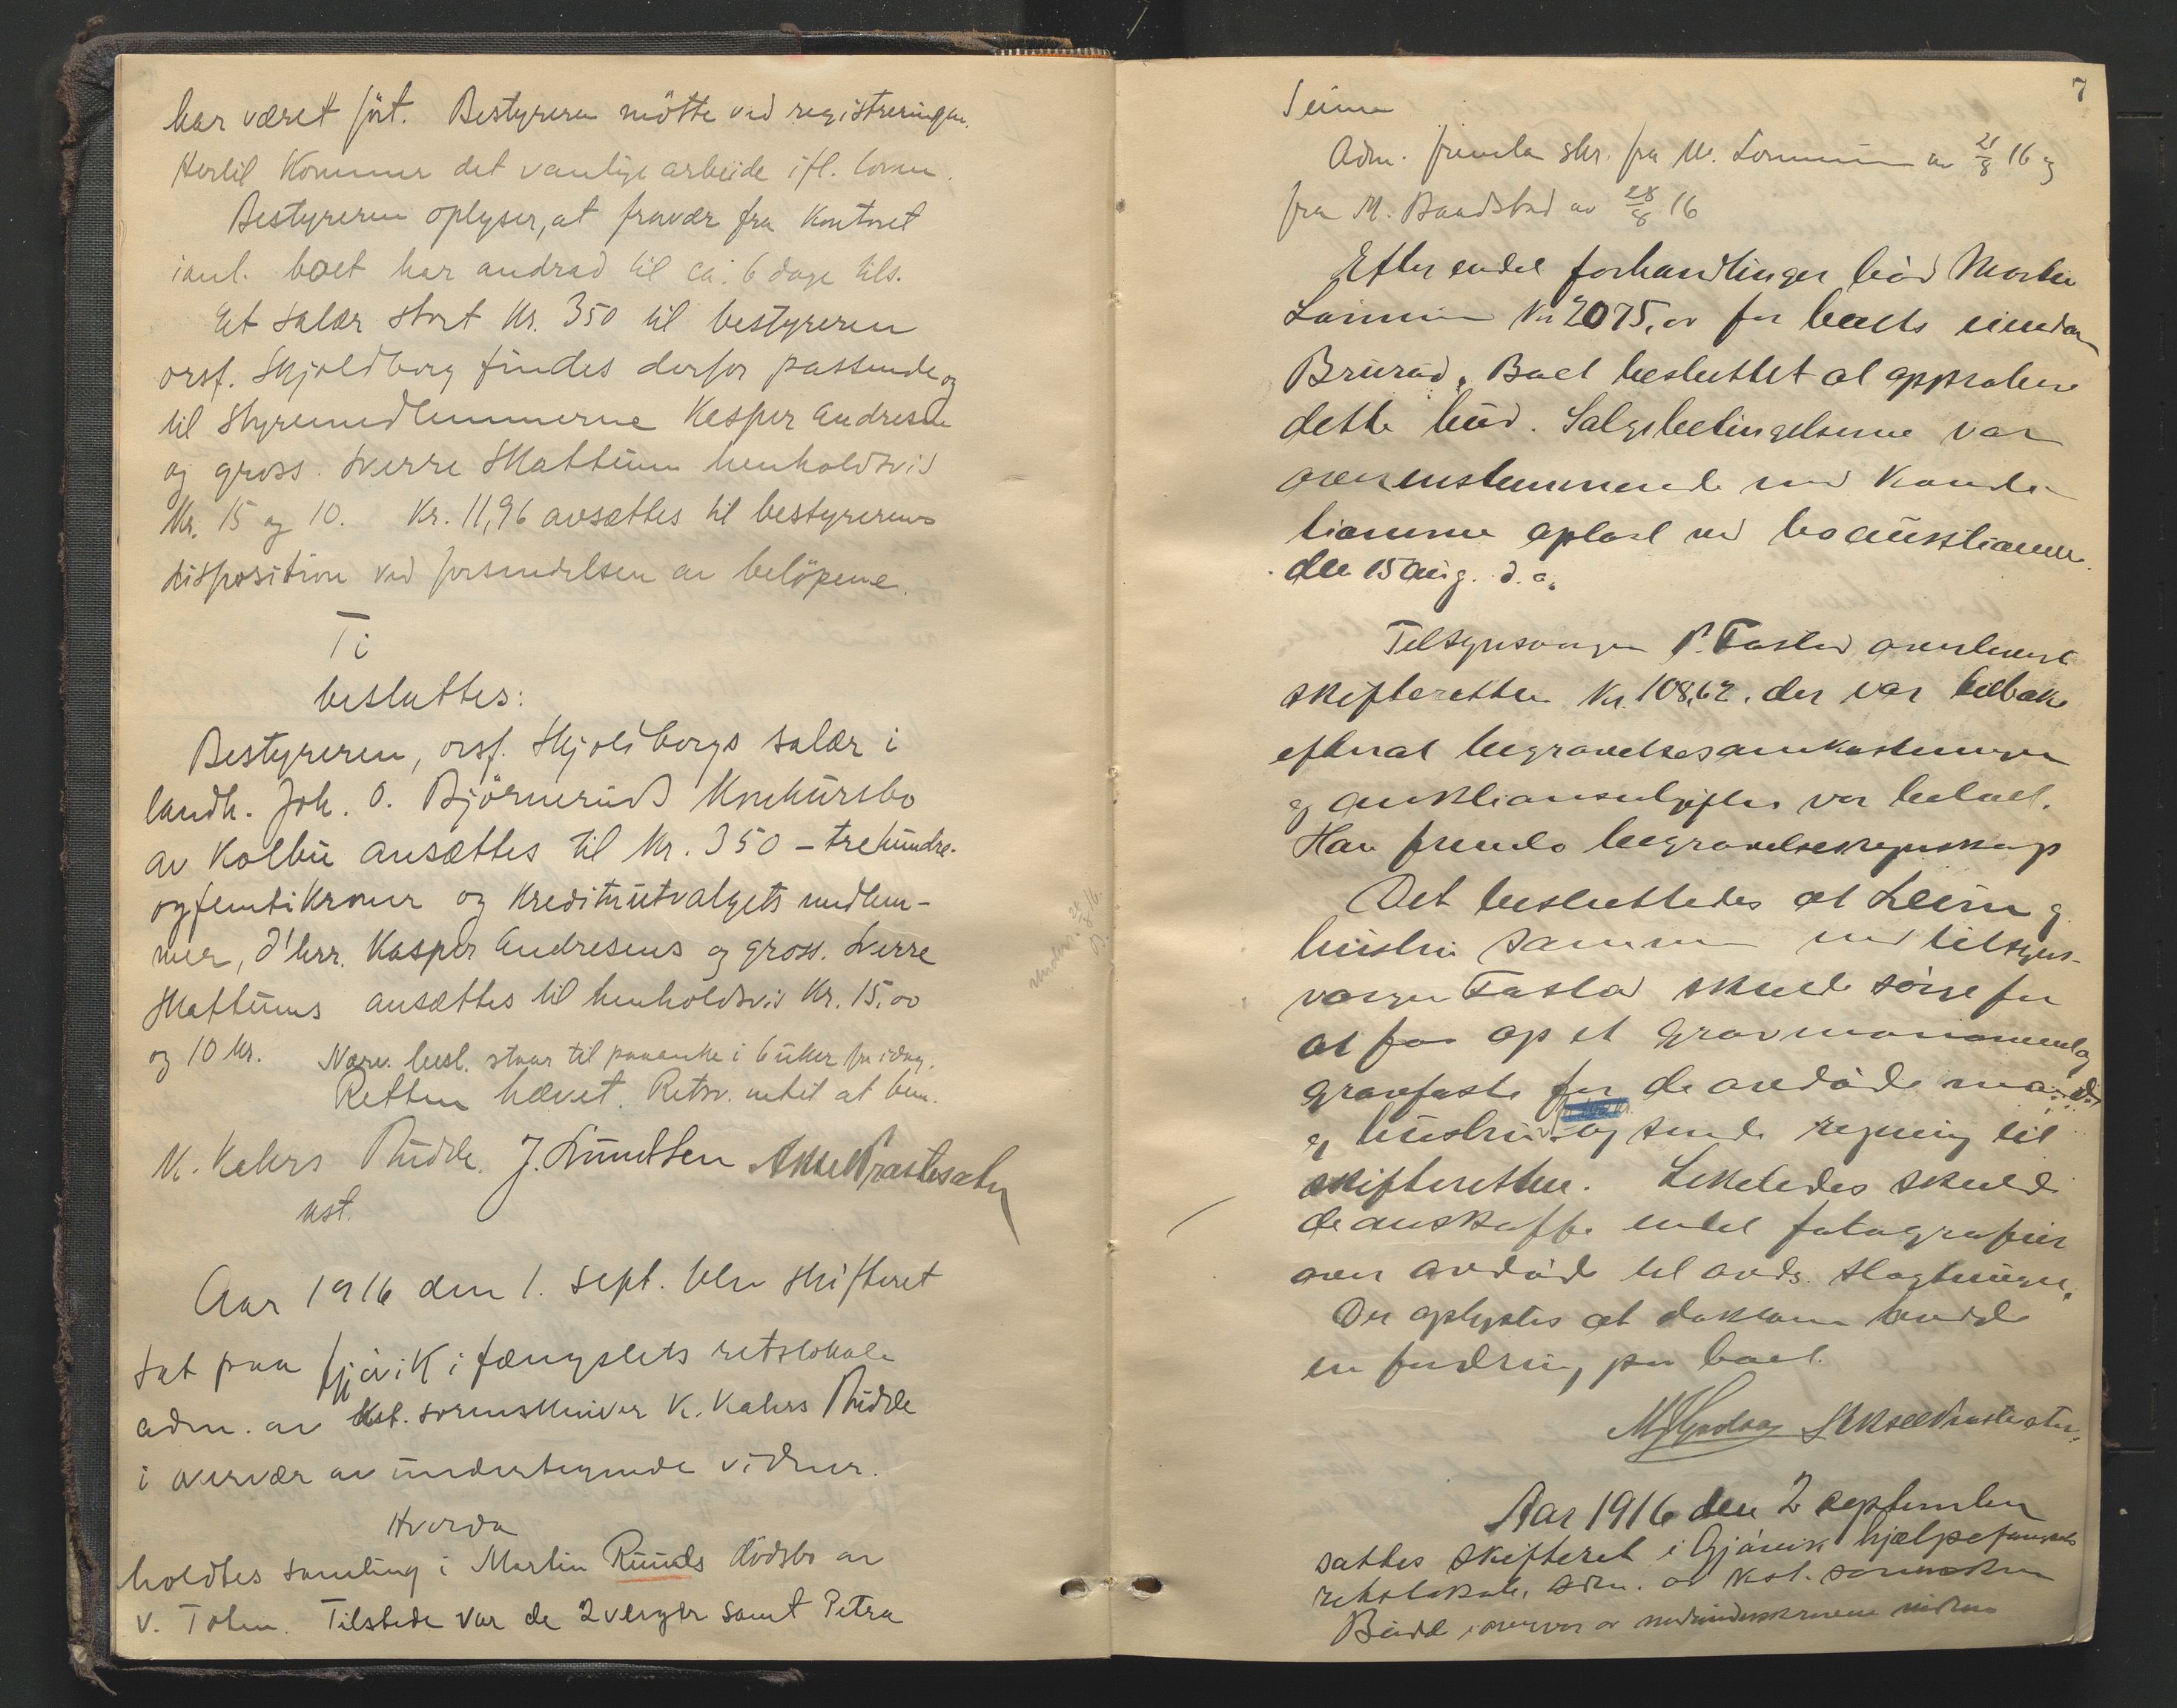 har været ført. Bestyreren møtte ved registreringen.
Hertil kommer det vanlige arbeide ifl. loven.
Bestyreren oplyser, at fravær fra kontoret
i anl. boet har andrad til ca. 6 dage tils.
Et salær stort kr. 350 til bestyreren
orsf. Skjoldborg findes derfor passende og
til styremedlemmerne Kasper Andresen
og gross. Sverre Skattum henholdsvis
kr. 15 og 10. Kr. 11,96 avsættes til bestyrerens
disposition ved forsendelsen av beløpene.
Ti
besluttes:
Bestyreren, orsf. Skjoldborgs salær i
landh. Joh. O. Bjørneruds konkursbo
av Kolbu ansættes til kr. 350 – trehundre-
ogfemti kroner og kreditorutvalgets medlem-
mer, d'herr. Kasper Andresens og gross. Sverre
Skattums ansættes til henholdsvis kr. 15.00
og 10 kr. Nærv. besl. staar til paaanke i 6 uker fra idag.
Retten hævet. Retsv. intet at bem.
K. Kahrs Budde. J. Lundsen Aksel Prestesæter
kst.
Aar 1916 den 1. sept. blev skifteret
sat paa Gjøvik i fængslets retslokale
adm. av kst. sorenskriver K. Kahrs Budde
i overvær av undertegnede vidner.
Hvorda
holdtes samling i Martin Ruuds dødsbo av
V. Toten. Tilstede var de 2 verger samt Petra
7
Leirn
Adm. fremla skr. fra M. av 21/8 16 og
fra M. Baadstad av 28/8 16
Efter endel forhandlinger bød Morten
kr 2075,00 for boets eiendom
Brurud. Boet besluttet at approbere
dette bud. Salgsbetingelserne var
overensstemmende med kondi-
tionerne oplæst ved boauktionen
den 15 aug. d. a.
Tilsynsvergen P. Faslad overleverte
skifteretten kr. 108,62, der var tilbake
efterat begravelsesomkostninger
og auktionsutgifter var betalt.
Han fremla begravelsesregnskap
Det besluttedes at Leirn og
hustru sammen med tilsyns-
vergen Faslad skulde sørge for
at faa op et gravmonument og
gravfæste for de avdøde mand
og hustru og sende regning til
skifteretten. Likeledes skulde
de anskaffe endel fotografier
over avdøde til avds. slegtninger.
Der oplystes at doktoren hadde
en fordring paa boet.
Aksel Prestesæter.
Aar 1916 den 2 september
sattes skifteret i Gjøvik hjælpefængsels
retslokale, adm. av kst. sorenskriver
Budde i overvær av nedenunderskrevne vidner